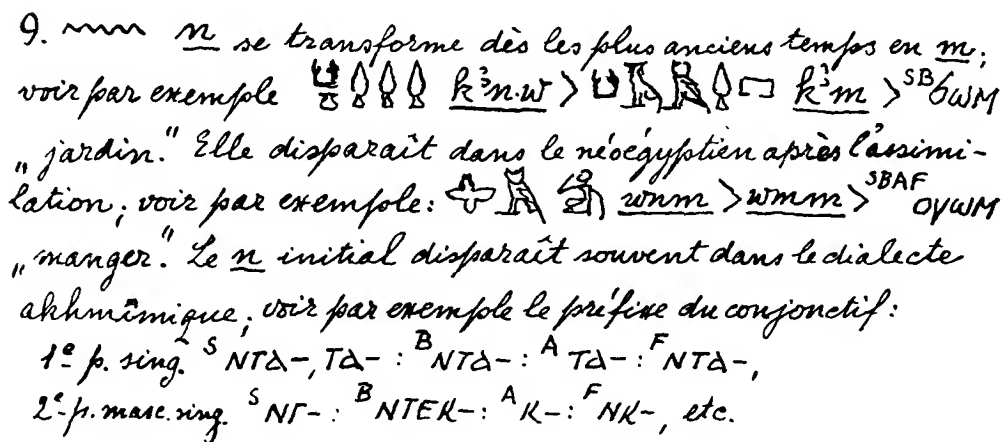 9. 𓈖 n se transforme dès les plus anciens temps en m;
voir par exemple k³n·w > k³m > ˢᴮϭⲱⲙ
„jardin." Elle disparaît dans le néoégyptien après l'assimi-
lation; voir par exemple: wnm > wmm > ˢᴮᴬꟳⲟⲩⲱⲙ
„manger." Le n initial disparaît souvent dans le dialecte
akhmîmique; voir par exemple le préfixe du conjonctif:
1ᵉ p. sing. ˢ ⲛⲧⲁ–, ⲧⲁ– : ᴮ ⲛⲧⲁ– : ᴬ ⲧⲁ– : ꟳ ⲛⲧⲁ–,
2ᵉ p. masc. sing. ˢ ⲛⲅ– : ᴮ ⲛⲧⲉⲕ– : ᴬ ⲕ– : ꟳ ⲛⲕ–, etc.